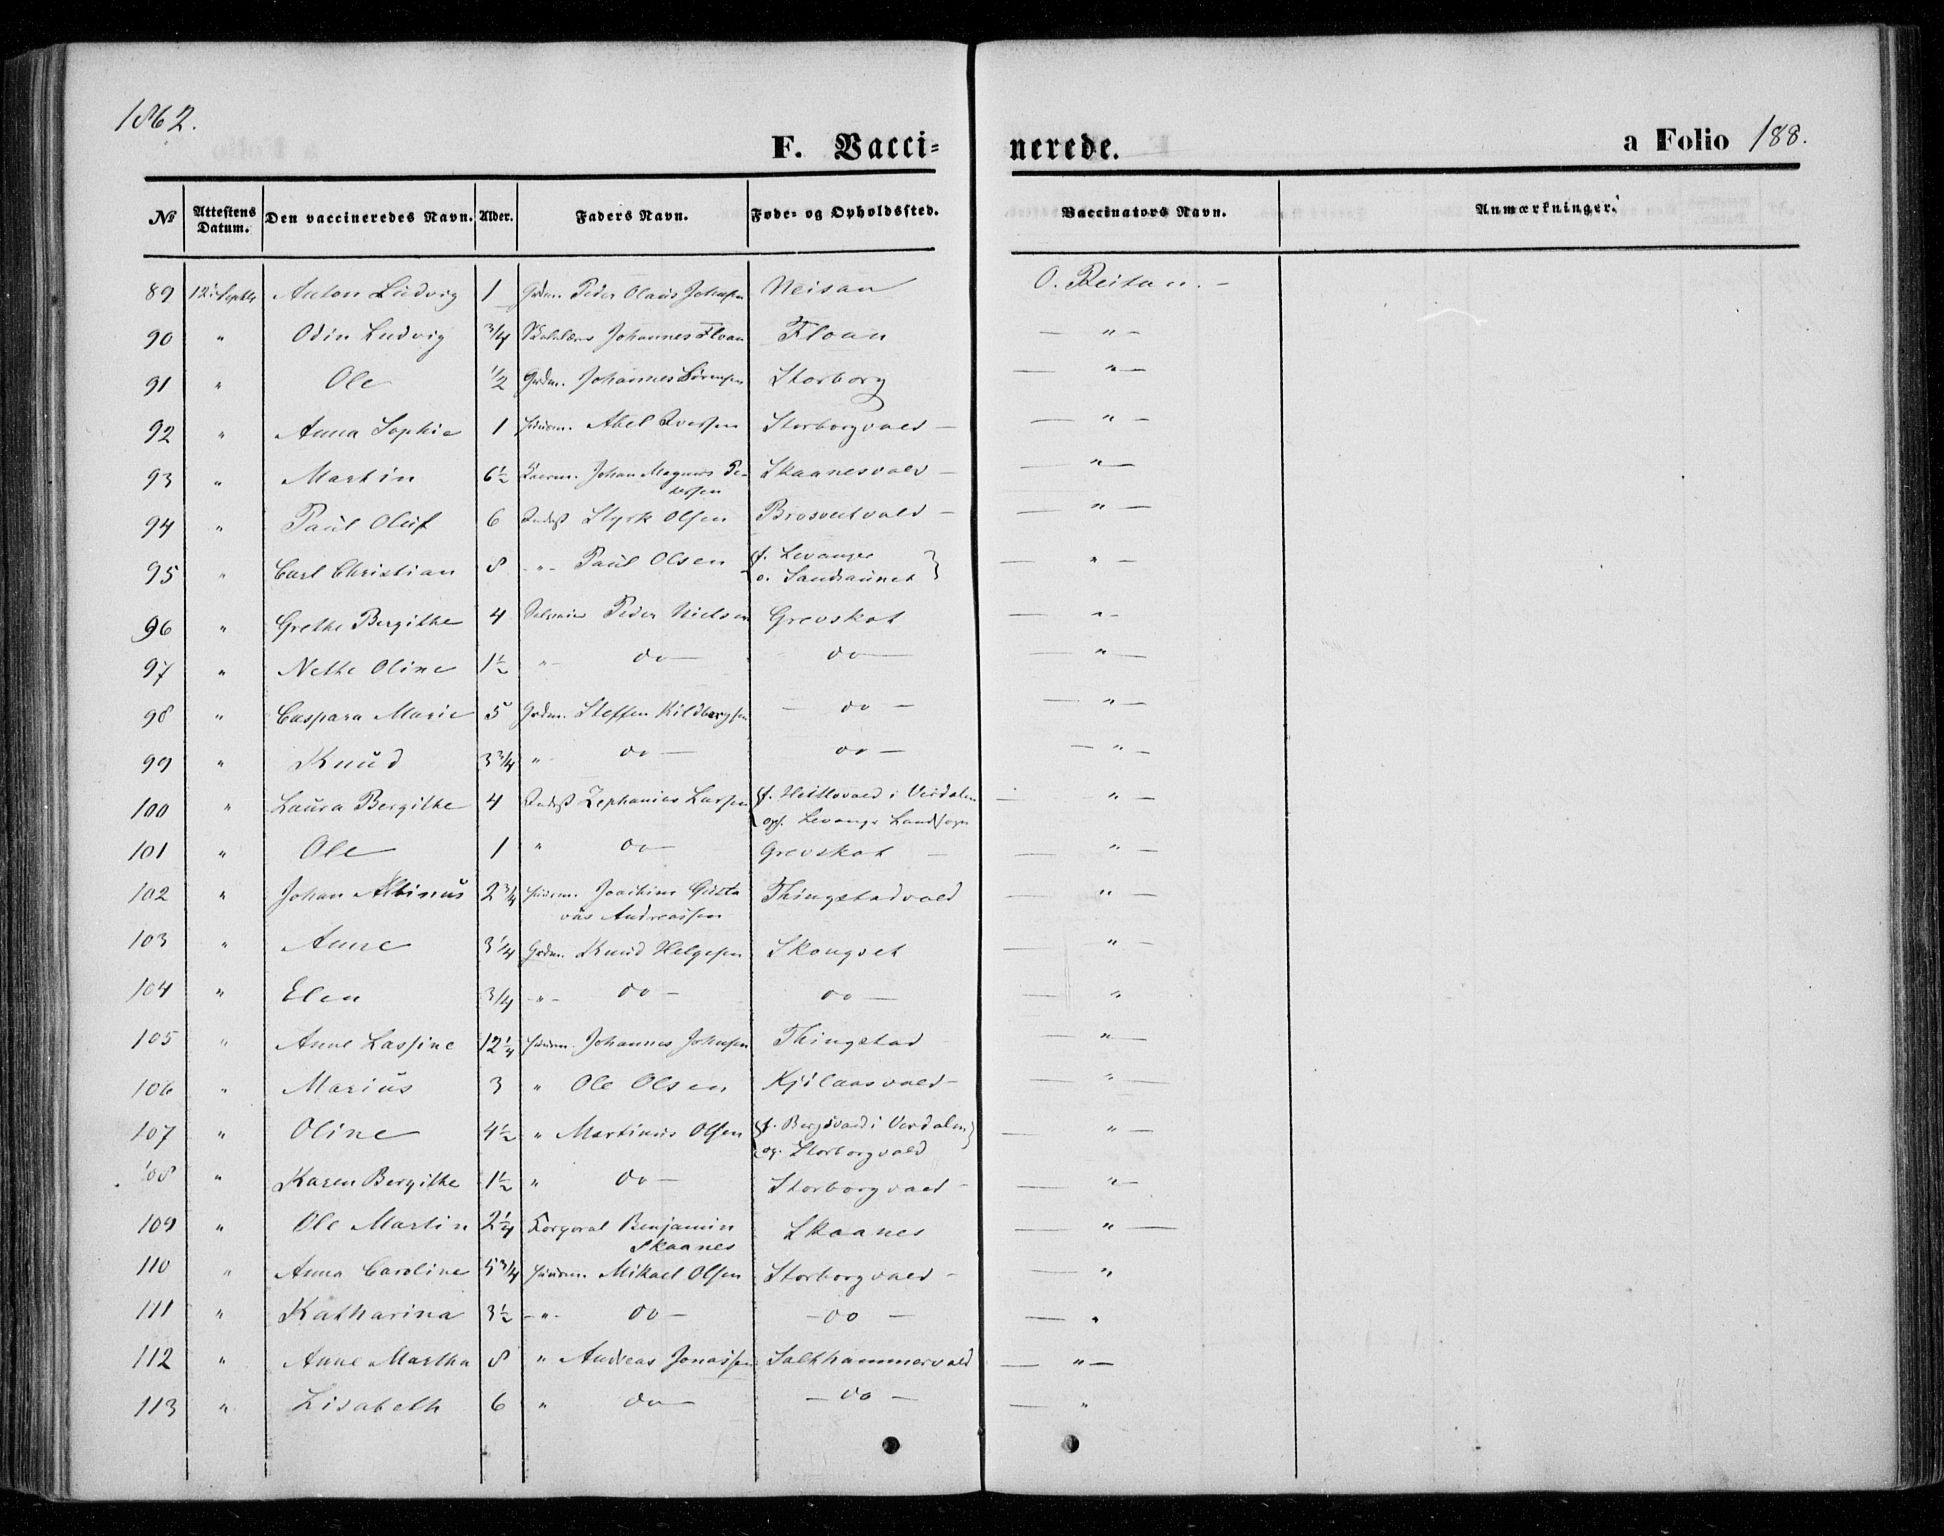 1862.
F. Vaccinerede. a Folio 188.
No Attestens Datum. Den vaccineredes Navn. Alder. Faders Navn. Føde- og Opholdssted. Vaccinators Navn. Anmærkninger.
89 12 Septbr Anton Ludvig 1 Grdm. Peder Olaus Johnsen Neisan O. Reitan. -
90 " Odin Ludvig 3/4 Johannes Floan Floan — " —
91 " Ole 1/2 Grdm. Johannes Sørensen Storborg — " —
92 " Anna Sophie 1 Huusm. Abel Iversen Storborgvald — — " —
93 " Martin 6½ Johan Magnus Pe-
tersen Skaanesvald — — " —
94 " Paul Oluf 6 Inderst Styrk Olsen vald — — " —
95 " Carl Christian 8 -"- Paul Olsen f. Levanger
o. Sandaunet — " —
96 " Grethe Bergithe 4 Peder Nielsen Grevskot — " —
97 " Nethe Oline 1½ " — do — do — — " —
98 " Caspara Marie 5 Grdm. Steffen Kildbergsen — do — — " —
99 " Knud 3 3/4 " do — do — — " —
100 " Laura Bergithe 4 Inderst Zephanias Larsen f. vald i Verdalen
oph. Levanger Landsogn — " —
101 " Ole 1 " do — Grevskot — — " —
102 " Johan Albinus 2 3/4 Huusm. Joachim Gusta
vus Andreassen Thingstadvald — " —
103 " Anne 3 1/4 Grdm. Knud Helgesen Skongset — " —
104 " Elen 3/4 -"- do — do — — "
105 " Anne Lassine 12 1/4 Huusm. Johannes Johnsen Thingstad — " —
106 " Marius 3 " Ole Olsen Kjølaasvald — — " —
107 " Oline 4½ " Martinus Olsen f. Bergsvald i Verdalen
og. Storborgvald — " —
108 " Karen Bergithe 1½ " do — Storborgvald — — " —
109 " Ole Martin 2 1/4 Korporal Benjamin
Skaanes Skaanes — " —
110 " Anna Caroline 5 3/4 Huusm. Mikael Olsen Storborgvald — — "
111 " Katharina 3½ -"- do — — do — — "
112 " Anne Martha 8 " Andreas Jonassen Salthammervald — " —
113 " Lisabeth 6 " do — — do — — "